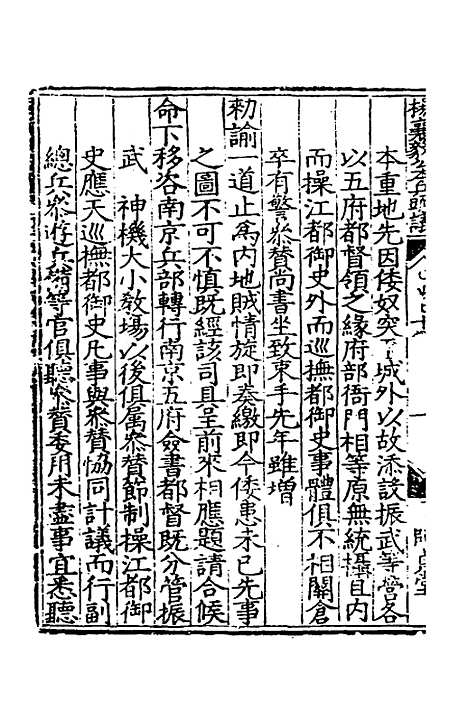 本重地先因倭奴突至城外以故添設振武等營各
以五府都督領之緣府部衙門相等原無統攝且内
而操江都御史外而巡撫都御史事體俱不相關倉
卒有警叅賛尚書坐致束手先年雖増
勑諭一道止為内地賊情旋即奏繳即今倭患未已先事
之圖不可不慎既經該司具呈前來相應題請合候
命下移咨南京兵部轉行南京五府僉書都督既分管振
武　神機大小敎場以後俱属叅賛節制操江都御
史應天巡撫都御史凡事與叅賛協同計議而行副
總兵叅遊兵備等官俱聽叅賛委用未盡事宜悉聽